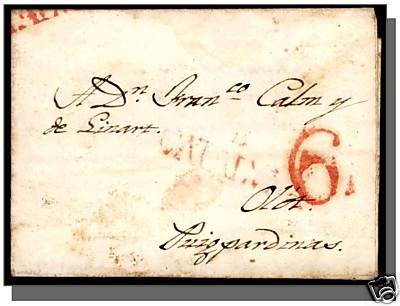 A Dn. Franco. Calm y
de Linart.
6
Olót.
Puigpardinas.